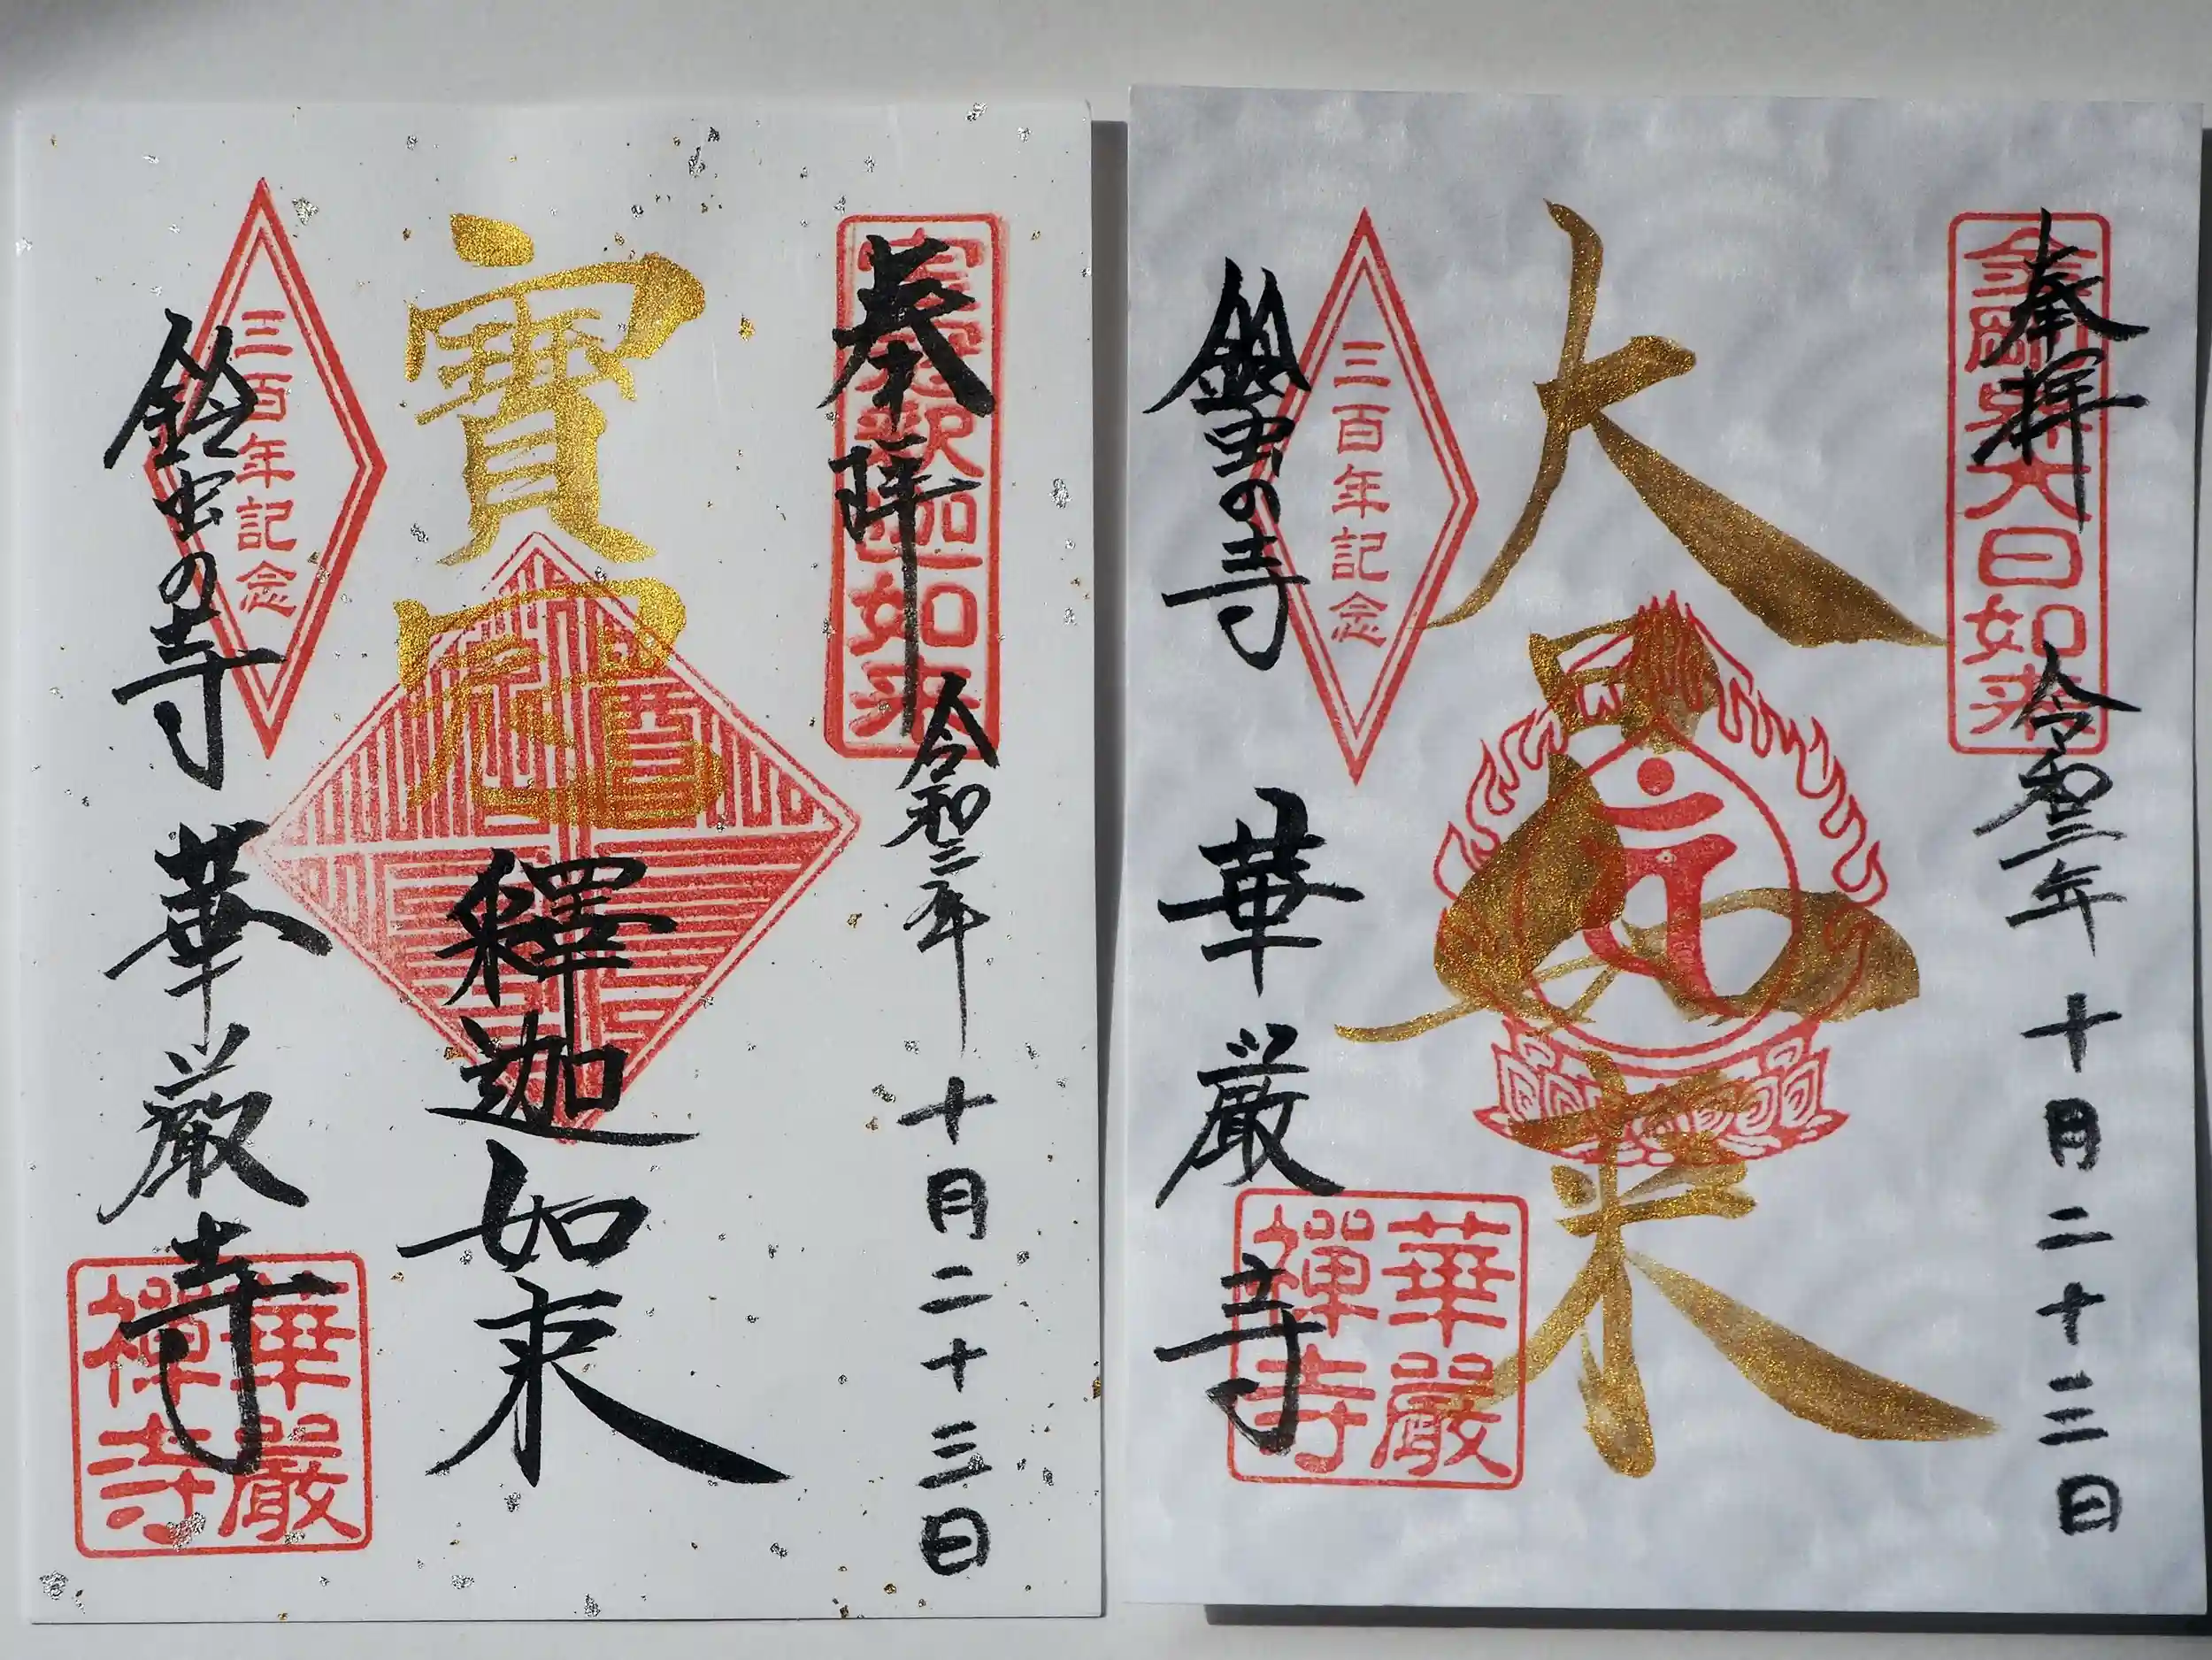 奉拝
宝冠釈迦如来
令和三年十月二十三日
寶冠
釋迦如来
三百年記念
鈴虫の寺 華厳寺
華嚴
禪寺
奉拝
金剛界大日如来
令和三年十月二十三日
大日如来
三百年記念
鈴虫の寺 華厳寺
華嚴
禪寺